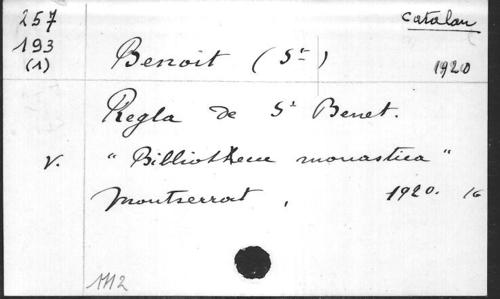 257 Catalan
193
(1) Benoit (St) 1920
Regla de St Benet.
v. "Billiothecue monastica"
Montserrat, 1920. 16
1112